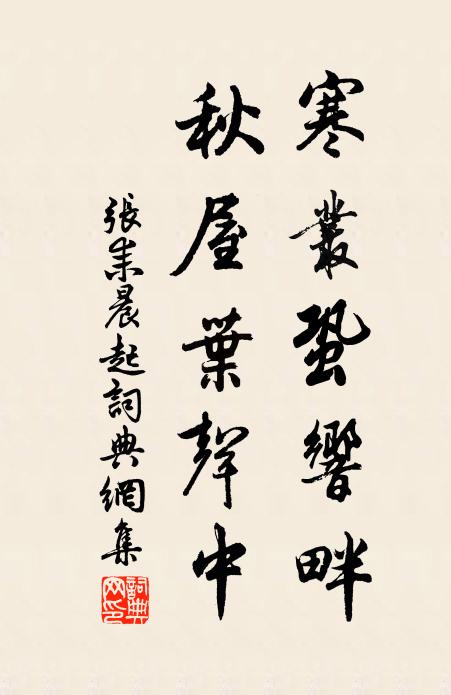 寒叢蛩響畔
秋屋葉聲中
張耒晨起詞典網集
詞典網印